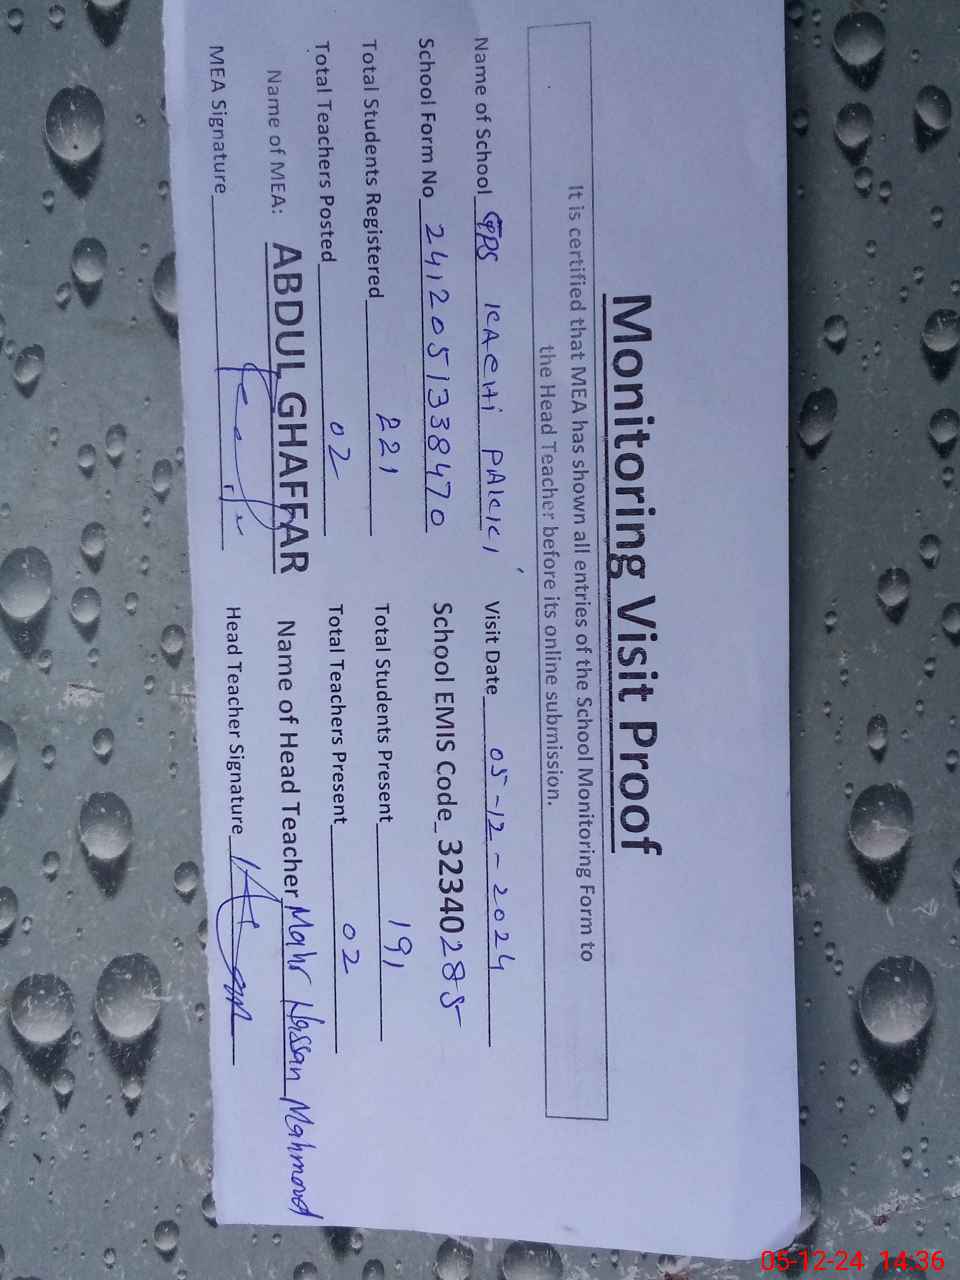 Monitoring Visit Proof
It is certified that MEA has shown all entries of the School Monitoring Form to
the Head Teacher before its online submission.
Name of School GPS KACHI PAKKI Visit Date 05-12-2024
School Form No 2412051338470 School EMIS Code_32340285
Total Students Registered 221 Total Students Present 191
Total Teachers Posted 02 Total Teachers Present 02
Name of MEA: ABDUL GHAFFAR Name of Head Teacher Mahr Hassan Mahmood
MEA Signature Head Teacher Signature
05-12-24 14:36